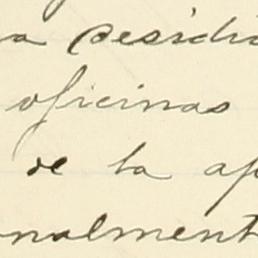 a residi
oficinas
de la ap
nalment